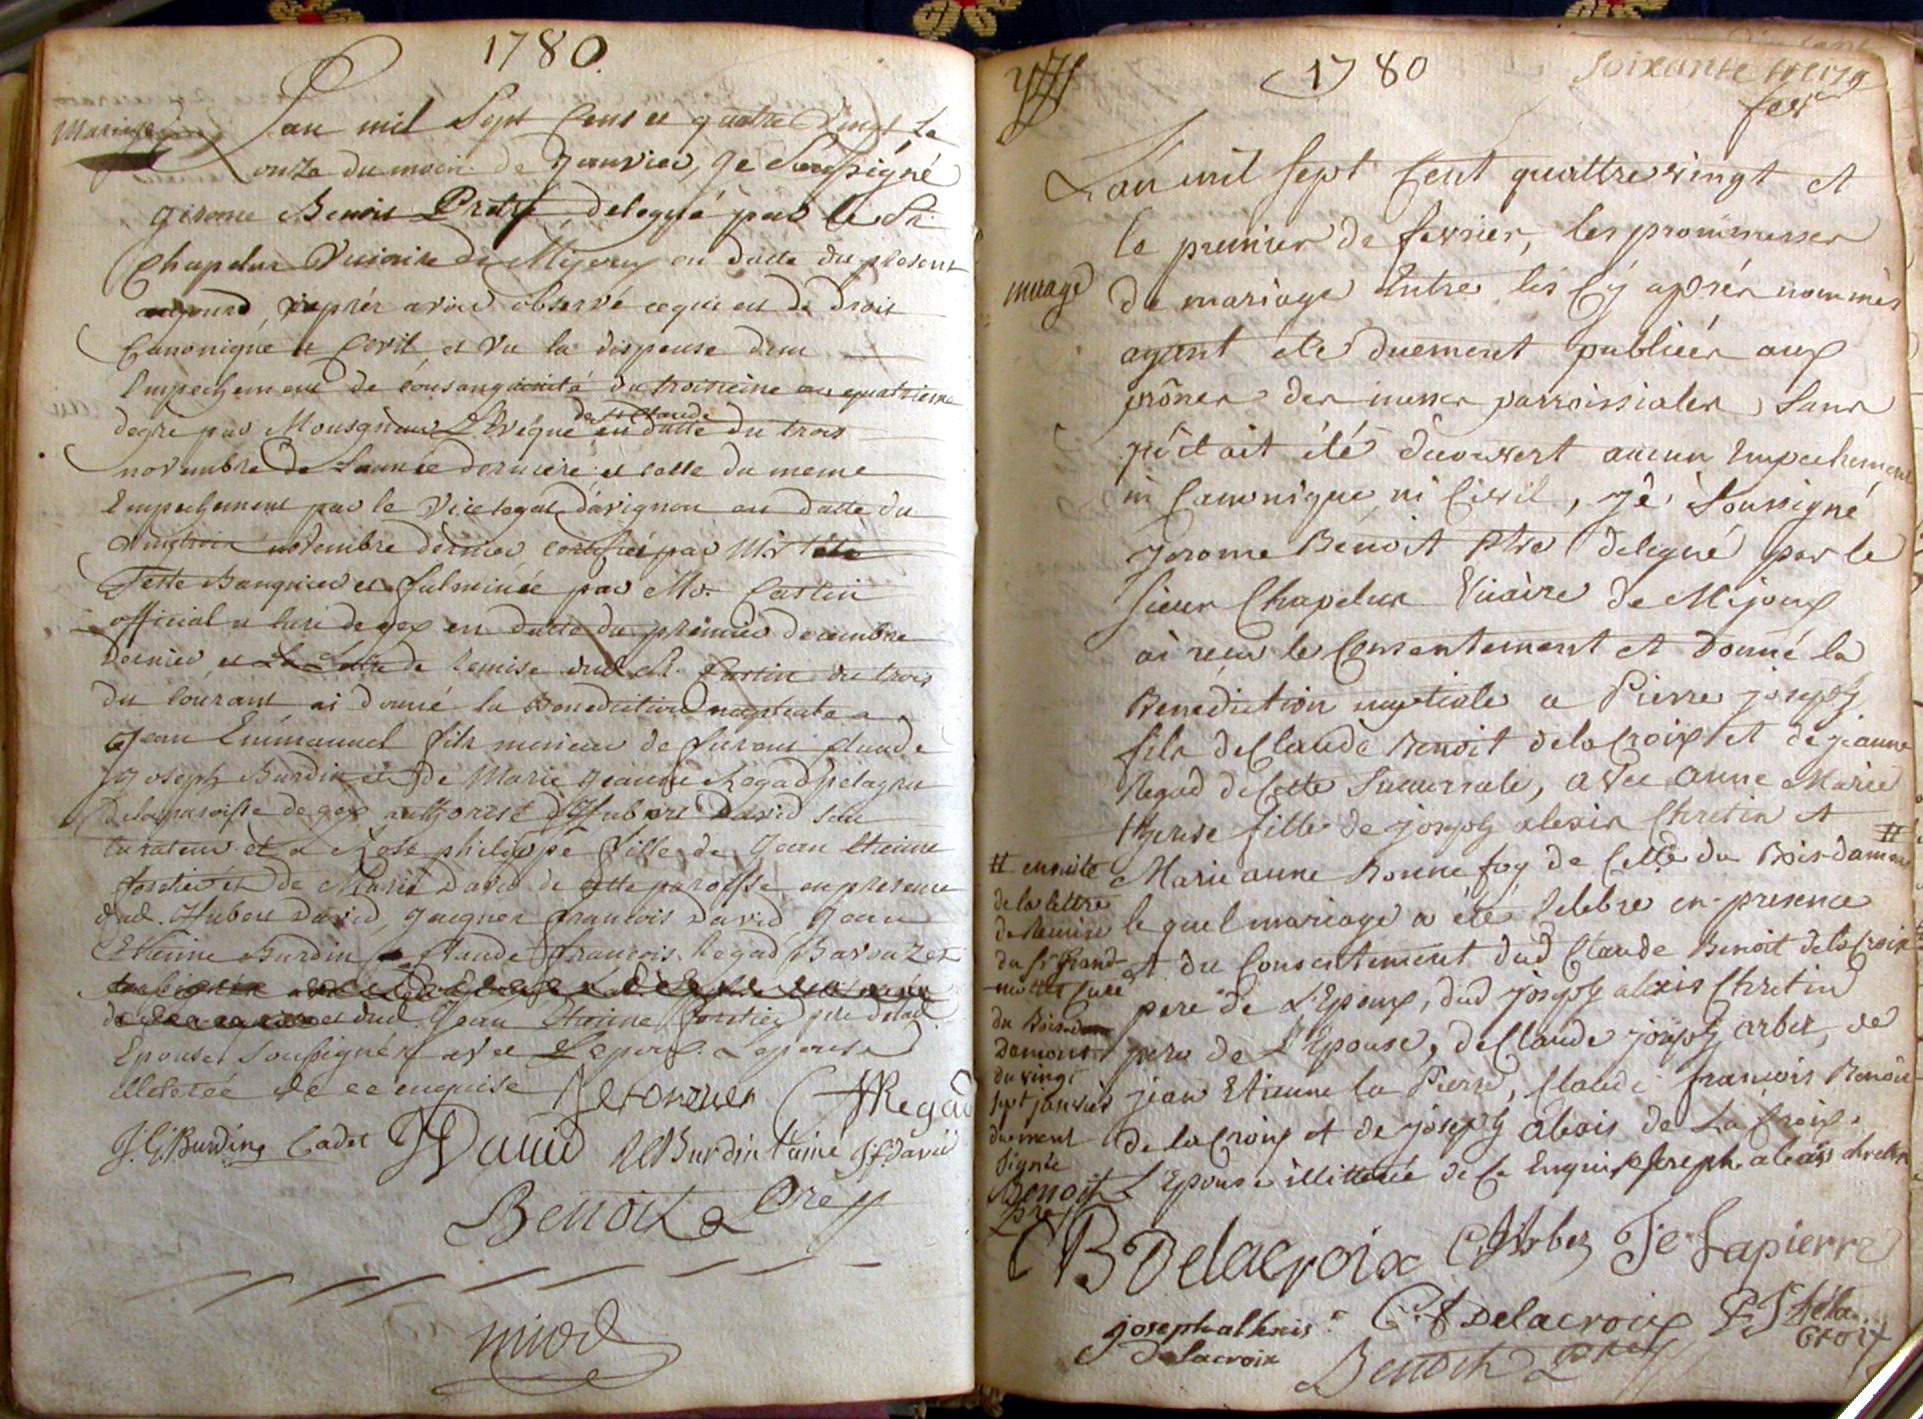 1780
Mariage
Lan mil Sept Cens et quatre Vingt Le
onze du mois de Janvier, Je Soussigné
Jerome Benoit Pretre, delegué par le Sr
Chapelux Vicaire de Mijoux en datte du present
apres avoir observé ce qui est de droit
Canonique et Civil, et Vu la dispense dun
Empechement de Consanguinité du troisieme au quatrieme
degré par Monseigneur L'Evêque de St Claude en datte du trois
novembre de Lannée derniere, et celle du meme
Empechement par le Vicelegat d'avignon en datte du
novembre dernier certifiée par Mr
Teste Banquier et fulminée par Mr. Castin
official et Curé de gex en datte du premier decembre
dernier et de Remise dud. Sr. Castin du trois
du Courant ai donné la Benediction nuptiale a
Jean Emmanuel fils mineur de furent Claude
Joseph Burdin et de Marie Jeanne Regad pelagru
de la paroisse de gex authorisé d'Hubert David son
curateur et a Rose philippe fille de Jean Etienne
forestier et de Marie David de cette paroisse en presence
dud. Hubert David, Jacques francois David, Jean
Etienne Burdin, Claude francois Regad Bavouzet
et dud. Jean Etienne forestier pere de lad.
Epouse, Soussignés avec L'epoux. L'epouse
illeterée de ce enquise
Regad
J. E. Burdin Cadet David Burdin l'ainé J f David
Benoit Ptre
1780
Soixante treize
L'an mil sept Cent quattre vingt et
le premier de fevrier, les prommesses
mariage
de mariage Entre les Cy aprés nommés
ayant été duement publiées aux
prônes des messes parroissiales, Sans
qu'il ait été découvert aucun Empechement
ni Canonique ni Civil, Je Soussigné
Jerome Benoit Ptre delegué par le
sieur Chapelux Vicaire de Mijoux
ai recu le Consentement et donné la
Benediction nuptiale a Pierre joseph
fils de Claude Benoit delaCroix et de jeanne
Regad de Cette Succursale, avec anne Marie
therese fille de joseph alexis Chretin et #
Marie anne Bonne foy de Celle du Bois-damont
le quel mariage a été Celebre en presence
et du Consentement dud Claude Benoit delaCroix
pere de L'Epoux, dud joseph alexis Chretin
pere de L'Epouse, de Claude joseph arbez, de
jean Etienne la Pierre, Claude francois Benoit
de la Croix et de joseph alexis de La Croix,
L'Epouse illitterée de Ce Enquise Joseph alexis chretin
# ensuite
de la lettre
de Remise
du Sr Grand
mottet Curé
du Bois-
Damont
du vingt
sept janvier
duement
signée
Benoit
Ptre
C B Delacroix C J Arbez J. e Lapierre
joseph alexis C. f Delacroix P J dela
delacroix Croix
Benoit Ptre